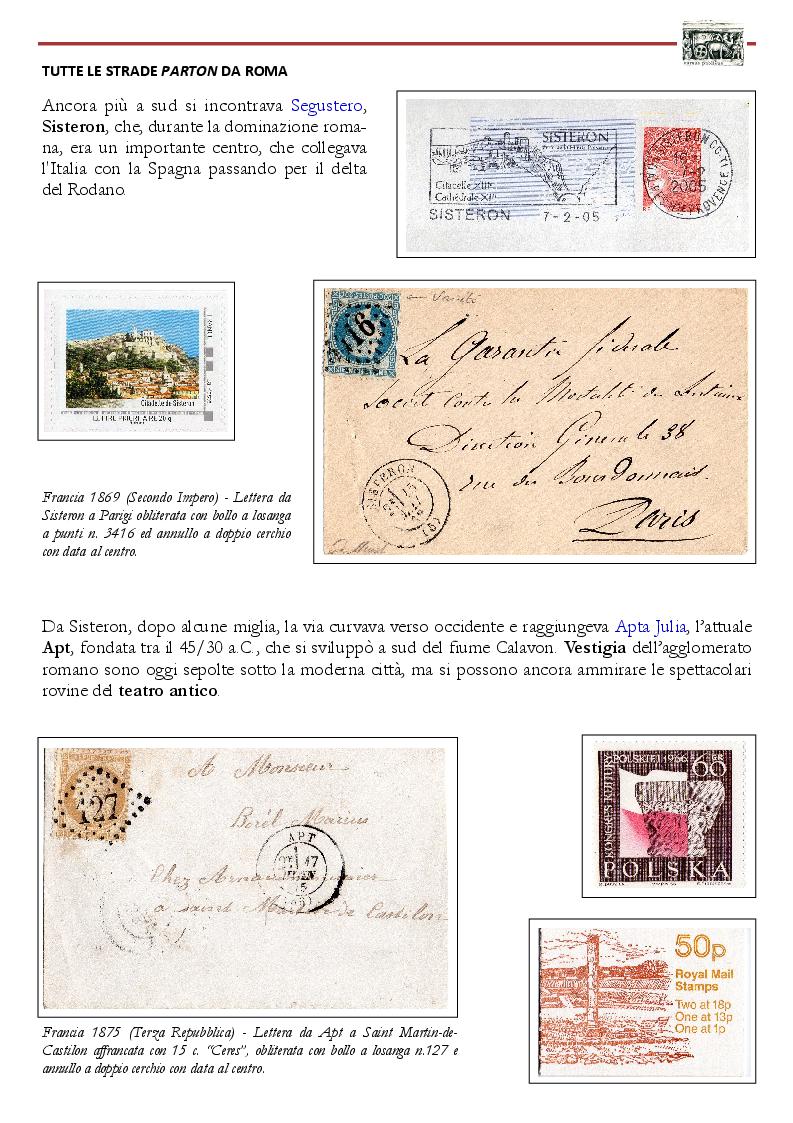 cursus publicus
TUTTE LE STRADE PARTON DA ROMA
Ancora più a sud si incontrava Segustero,
Sisteron, che, durante la dominazione roma-
na, era un importante centro, che collegava
l'Italia con la Spagna passando per il delta
del Rodano.
SISTERON
Citadelle XIIIe
Cathédrale XIIe
SISTERON 7-2-05
7-2
2005
Citadelle de Sisteron
LETTRE PRIORITAIRE 20 g
3416
La Garantie fédérale
Société contre la Mortalité des
Direction Générale 38
rue des Bourdonnais
Paris
SISTERON
(5)
Francia 1869 (Secondo Impero) - Lettera da
Sisteron a Parigi obliterata con bollo a losanga
a punti n. 3416 ed annullo a doppio cerchio
con data al centro.
Da Sisteron, dopo alcune miglia, la via curvava verso occidente e raggiungeva Apta Julia, l'attuale
Apt, fondata tra il 45/30 a.C., che si sviluppò a sud del fiume Calavon. Vestigia dell'agglomerato
romano sono oggi sepolte sotto la moderna città, ma si possono ancora ammirare le spettacolari
rovine del teatro antico.
127
A Monsieur
Borel Marius
APT
17
Chez Arnaud
a saint Martin de Castilon
KONGRES KULTURY POLSKIEJ 1966
60 GR
POLSKA
50p
Royal Mail
Stamps
Two at 18p
One at 13p
One at 1p
Francia 1875 (Terza Repubblica) - Lettera da Apt a Saint Martin-de-
Castilon affrancata con 15 c. "Ceres", obliterata con bollo a losanga n.127 e
annullo a doppio cerchio con data al centro.